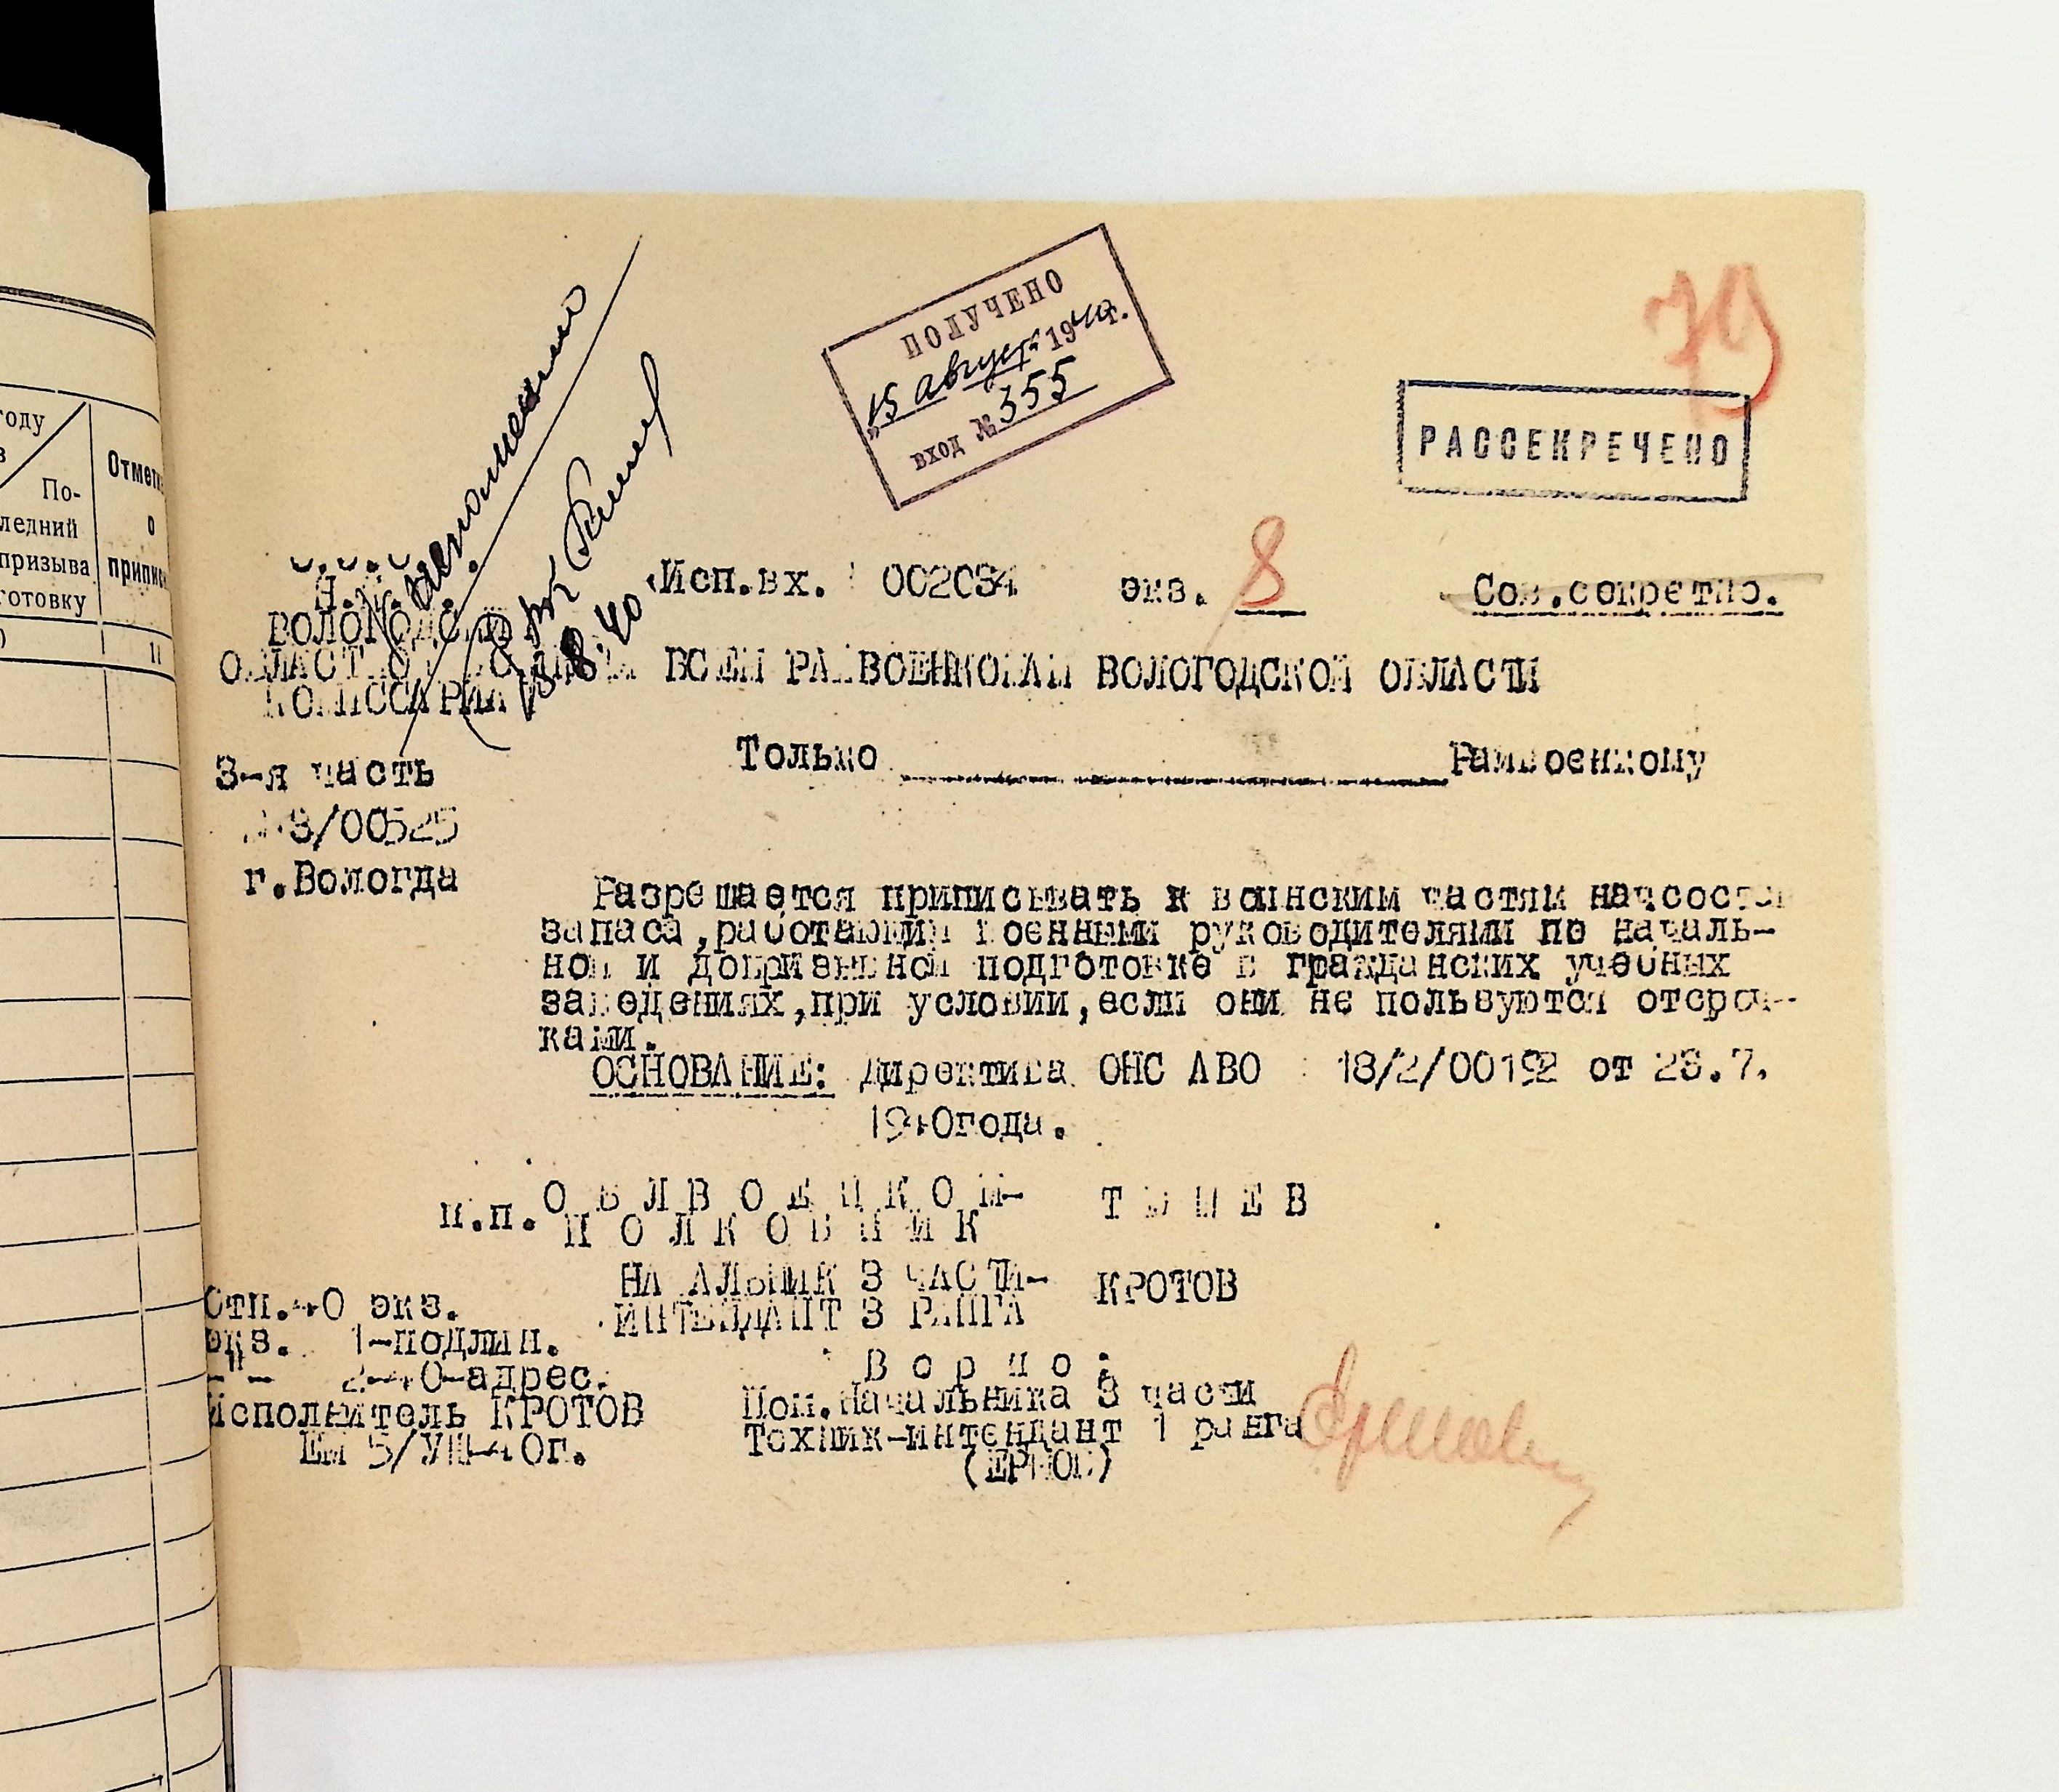 году
в
По-
ледний
призыва
готовку
Отметк
о
припис
11
ПОЛУЧЕНО
"15 августа 1940г.
ВХОД №355
79
РАССЕКРЕЧЕНО
Исполнено
18.8.40
С.С.С.Р.
Н.К.О.
ВОЛОГОДСКИЙ
ОБЛАСТНОЙ ВОЕННЫЙ
КОМИССАРИАТ
3-я часть
3/00525
г.Вологда
Исп.вх. 002034 экз. 8 Сов.секретно.
ВСЕМ РАЙВОЕНКОМАМ ВОЛОГОДСКОЙ ОБЛАСТИ
Только Райвоенкому
Разрешается приписывать к воинским частям начсостав
запаса,работающий военными руководителями по началь-
ной и допризывной подготовке в гражданских учебных
заведениях,при условии,если они не пользуются отсроч-
ками.
ОСНОВАНИЕ: Директива ОНС АВО 18/2/00192 от 23.7.
1940года.
п.п. ОБЛВОЕНКОМ-
ПОЛКОВНИК
НАЧАЛЬНИК 3 ЧАСТИ- КРОТОВ
ИНТЕНДАНТ 3 РАНГА
Отп.40 экз.
экз. 1-подлин.
-"- 2-40-адрес.
Исполнитель КРОТОВ
ЕМ 5/УШ-40г.
Верно:
Пом.Начальника 3 части
Техник-интендант 1 ранга